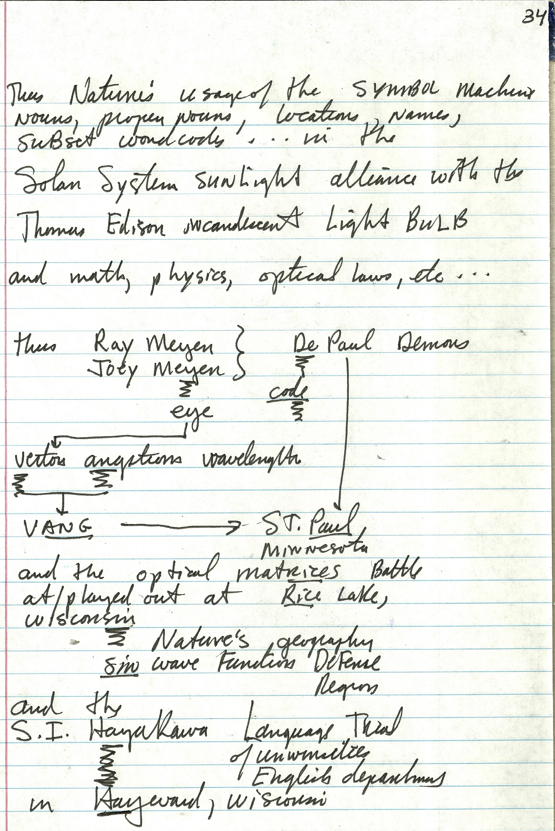 34
Thus Nature's usage of the SYMBOL machine
nouns, proper nouns, locations, names,
subset wordcode .... in the
Solar System sunlight alliance with the
Thomas Edison incandescent Light BULB
and math, physics, optical laws, etc ...
thus Ray Meyer } De Paul Demons
Joey Meyer
code
eye
vector angstroms wavelength
VANG ST. Paul,
Minnesota
and the optical matrices Battle
at/played out at Rice Lake,
Wisconsin
Nature's geography
sin wave Function Defense
Region
and the
S.I. Hayakawa Language Thad
of universities
English department
in Hayward, Wisconsin